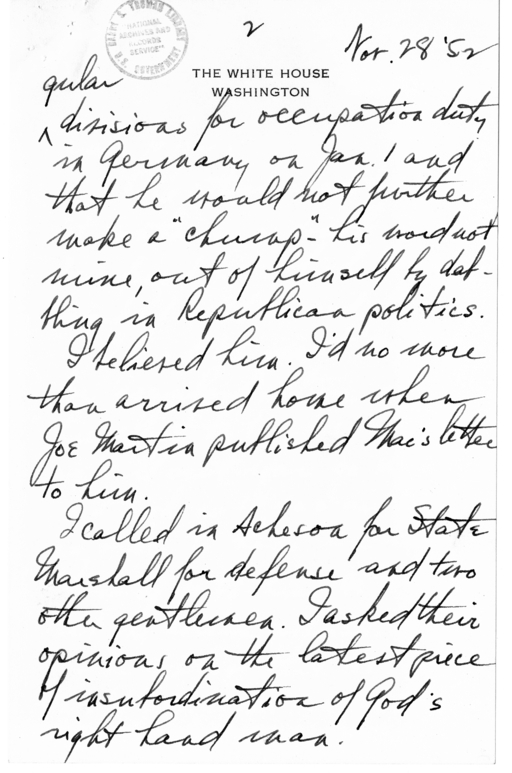 HARRY S. TRUMAN LIBRARY
"NATIONAL
ARCHIVES AND
RECORDS
SERVICE"
U.S. GOVERNMENT
2
Nov. 28 '52
THE WHITE HOUSE
WASHINGTON
gular
^ divisions for occupation duty
in Germany on Jan. 1 and
that he would not further
make a "chump"- his word not
mine, out of himself by dab-
bling in Republican politics.
I believed him. I'd no more
than arrived home when
Joe Martin published Mac's letter
to him.
I called in Acheson for State
Marshall for defense and two
other gentlemen. I asked their
opinions on the latest piece
of insubordination of God's
right hand man.